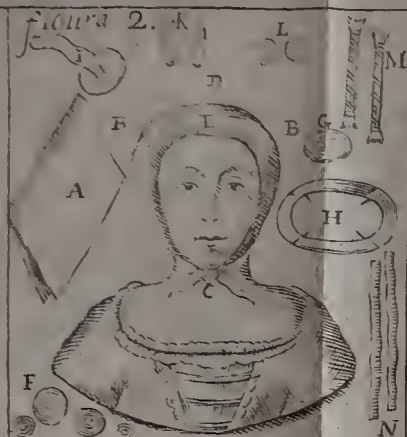 figura 2. K
L
M
D
I
B
B G
A
H
C
F
N